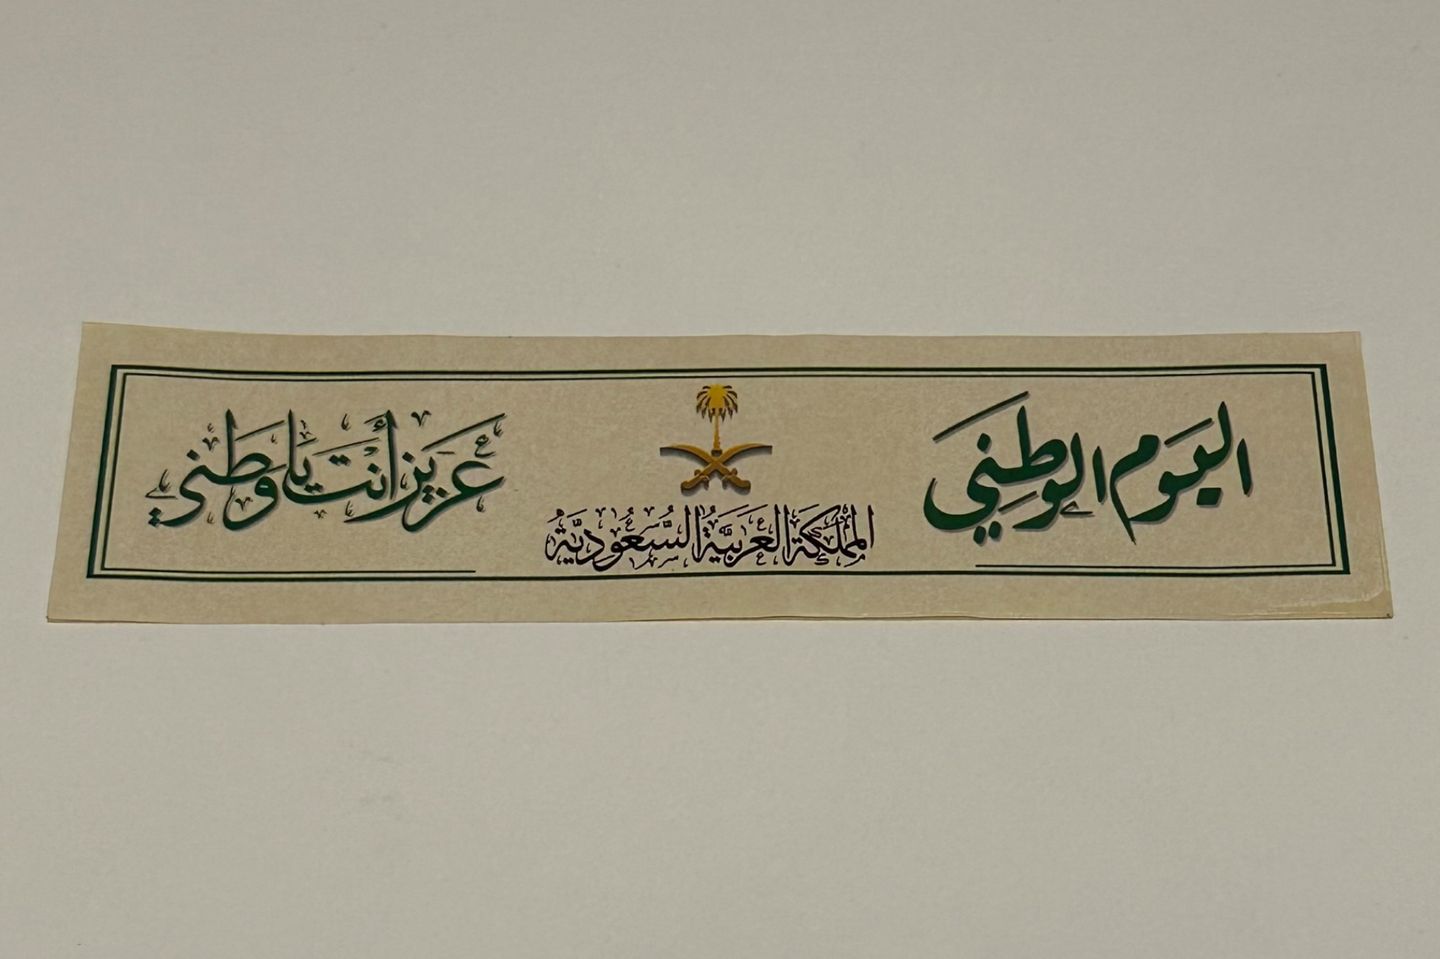 اليَوم الوطِني
المملكة العربية السعودية
عزيز أنت يا وطني